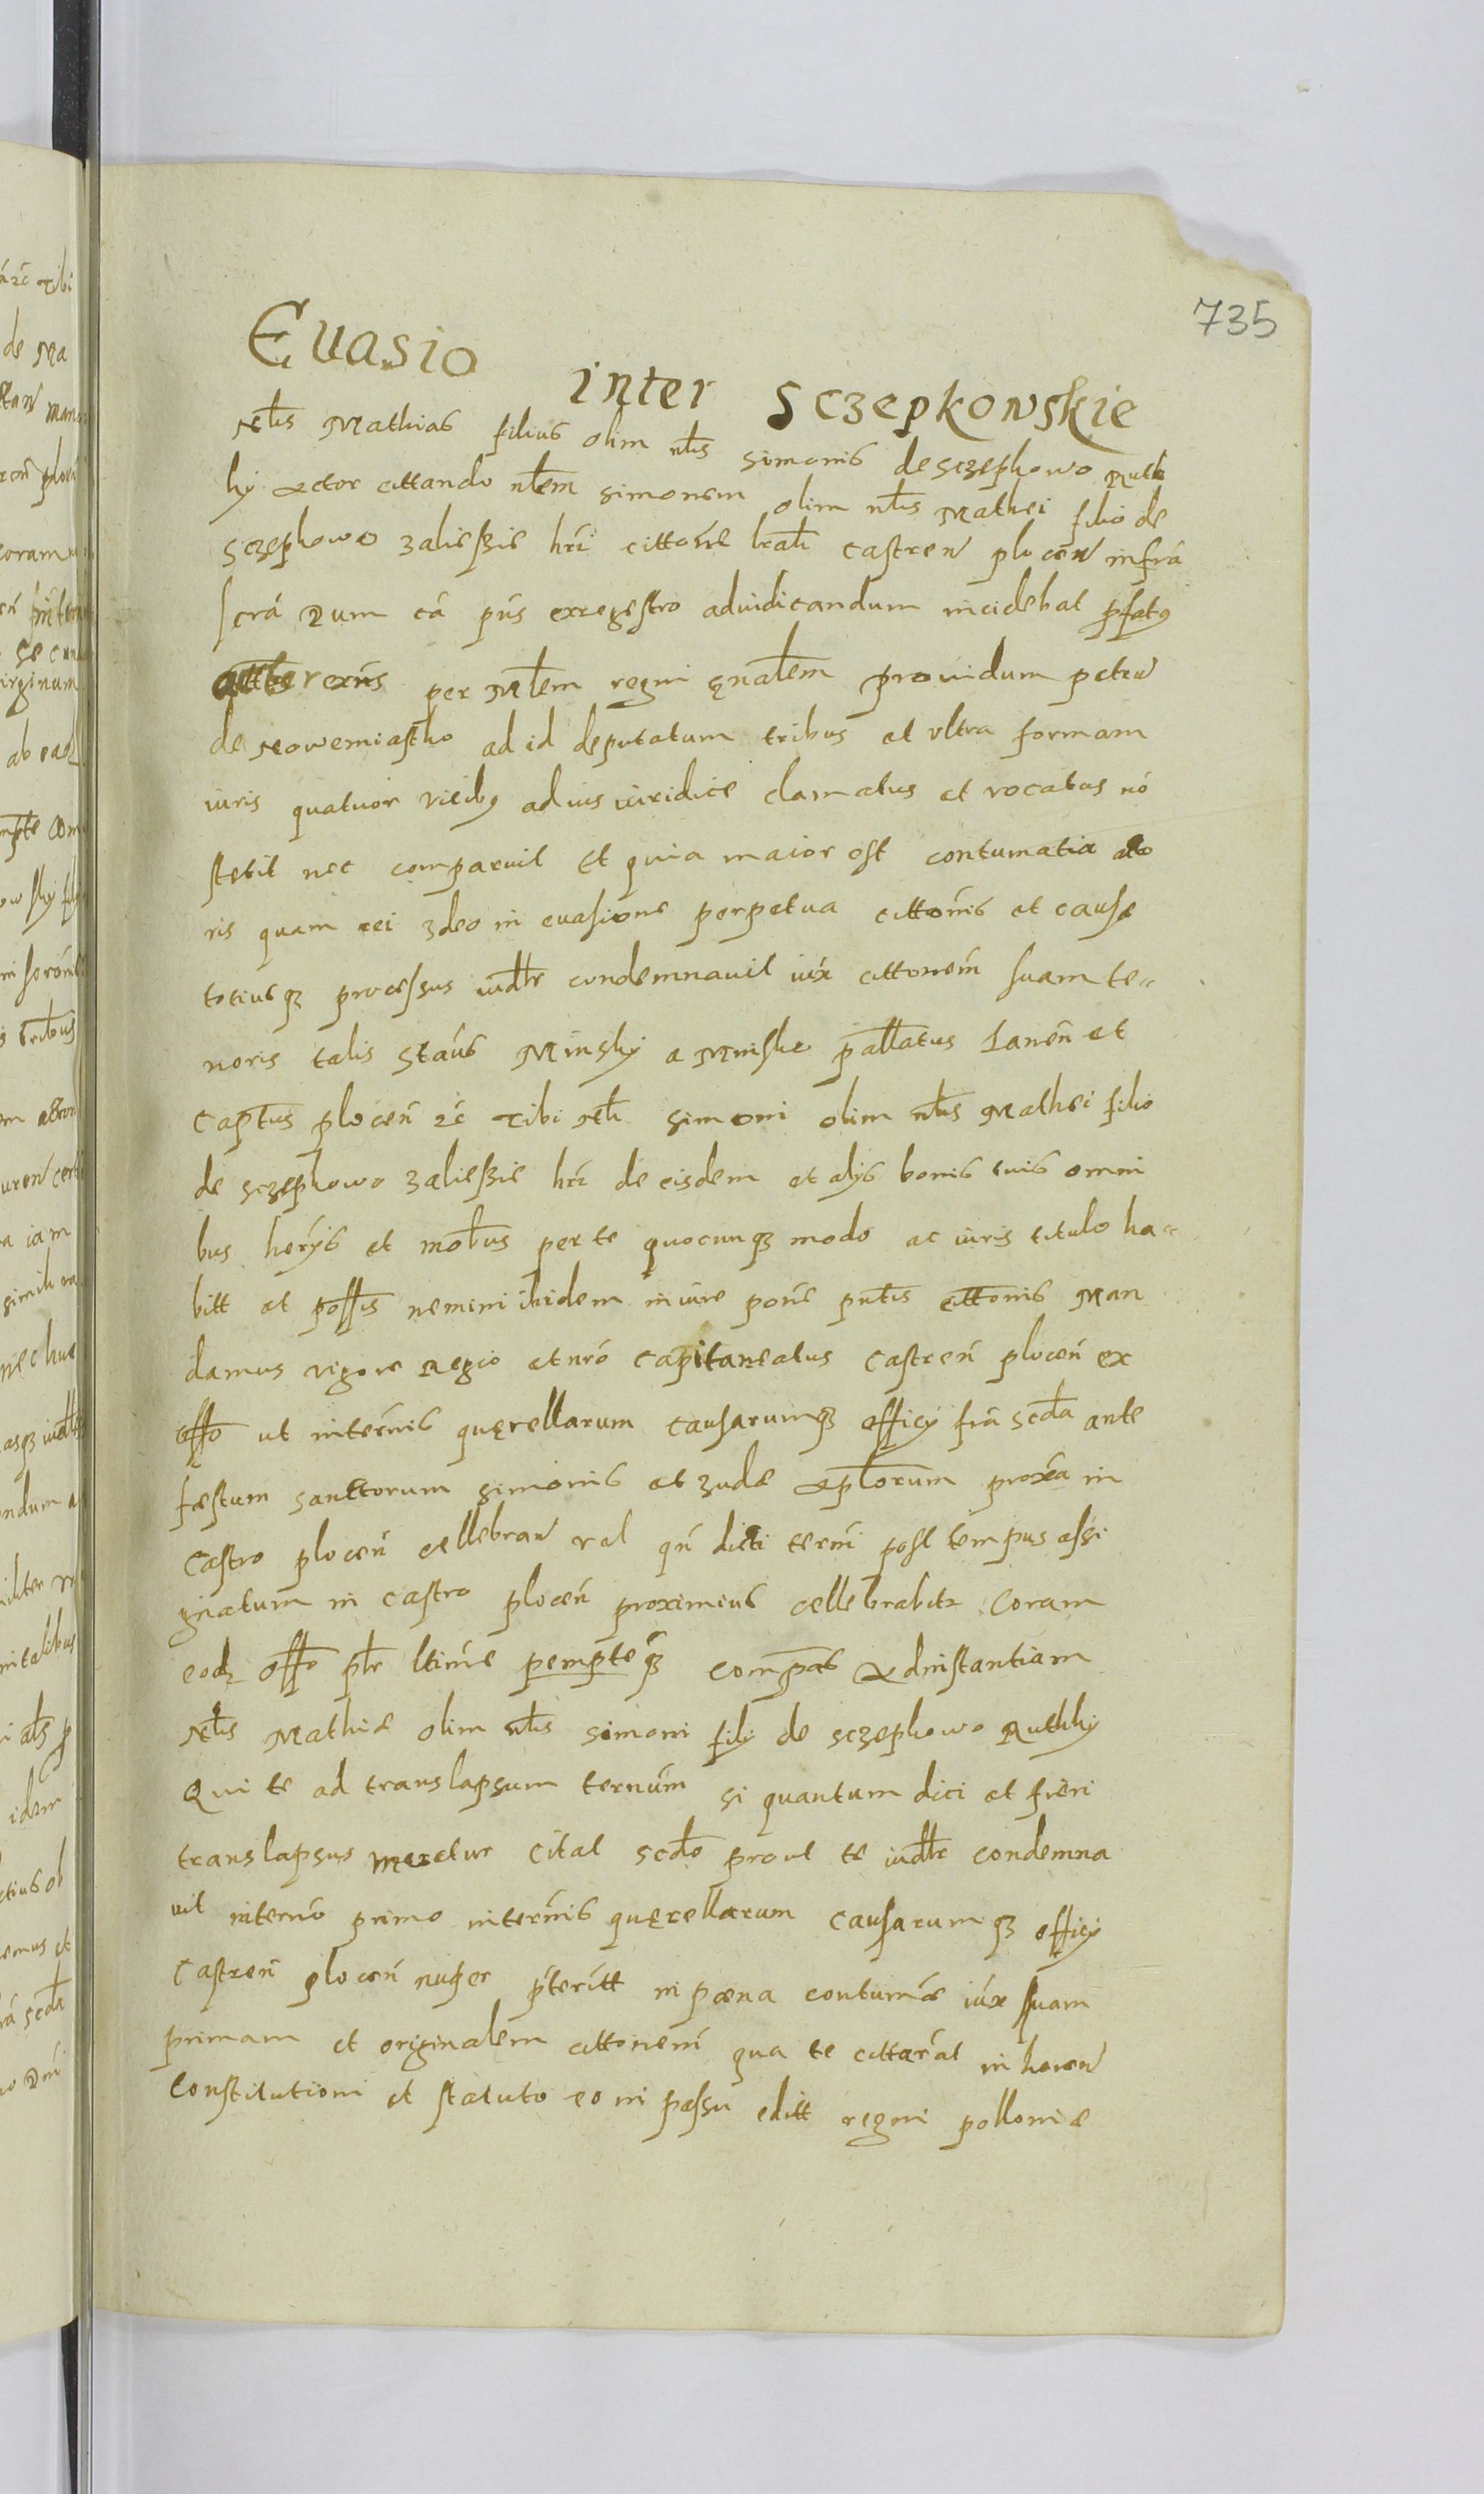 735
Evasio inter Sczepkowskie
Nblis Mathias filius olim nblis Simonis de Sczepkowo Rutk
ky Actor cittando nblem Simonem olim nblis Mathei filio de
Sczepkowo Zalieszie hri cittone lrali castren plocen infra
scra Dum ca pns ex regestro adiudicandum incidebat pfatus
per Mlem regni gnalem providum petru
de Nowemiastko ad id deputatum tribus et ultra formam
iuris quatuor vicibus ad ius iuridice clamatus et vocatus no
stetit nec comparuit Et quia maior est contumatia acto
ris quam rei Ideo in evasione perpetua cittonis et cause
totiusq processus iudlr condemnavit iux cittonem suam te-
noris talis Staus Minsky a Minske pallatus Lancn et
Captus plocen zc Tibi Nbli Simoni olim nblis Mathei filio
de Sczepkowo Zalieszie hri de eisdem et alys bonis tuis omni
bus herys et mobus per te quocunq modo ac iuris titulo ha-
bitt et possis nemini ibidem in iure pone pntis cittonis Man
damus vigore Regio et nro Capitaneatus Castren plocen ex
offo ut in ternis querellarum causarumq officy fra scda ante
faestum Sanctorum Simonis et Judae Aplorum proxa in
Castro plocen cellebran val qn dicti terni post tempus assi
gnatum in castro plocen proximius cellebrabitr Coram
eodz offo plr ltime pempteq compas Ad instantiam
Nblis Mathiae olim nblis Simoni fily de Sczepkowo Rutkky
Qui te ad translapsum ternum si quantum dici et fieri
translapsus meretur Citat scdo prout te iudlr condemna
vit in terno primo in ternis querellarum causarumq officy
Castren plocen nuper pteritt in paena contumae iux suam
primam et originalem cittonem qua te cittarat in haeren
Constitutioni et statuto eo in passu editt regni polloniae